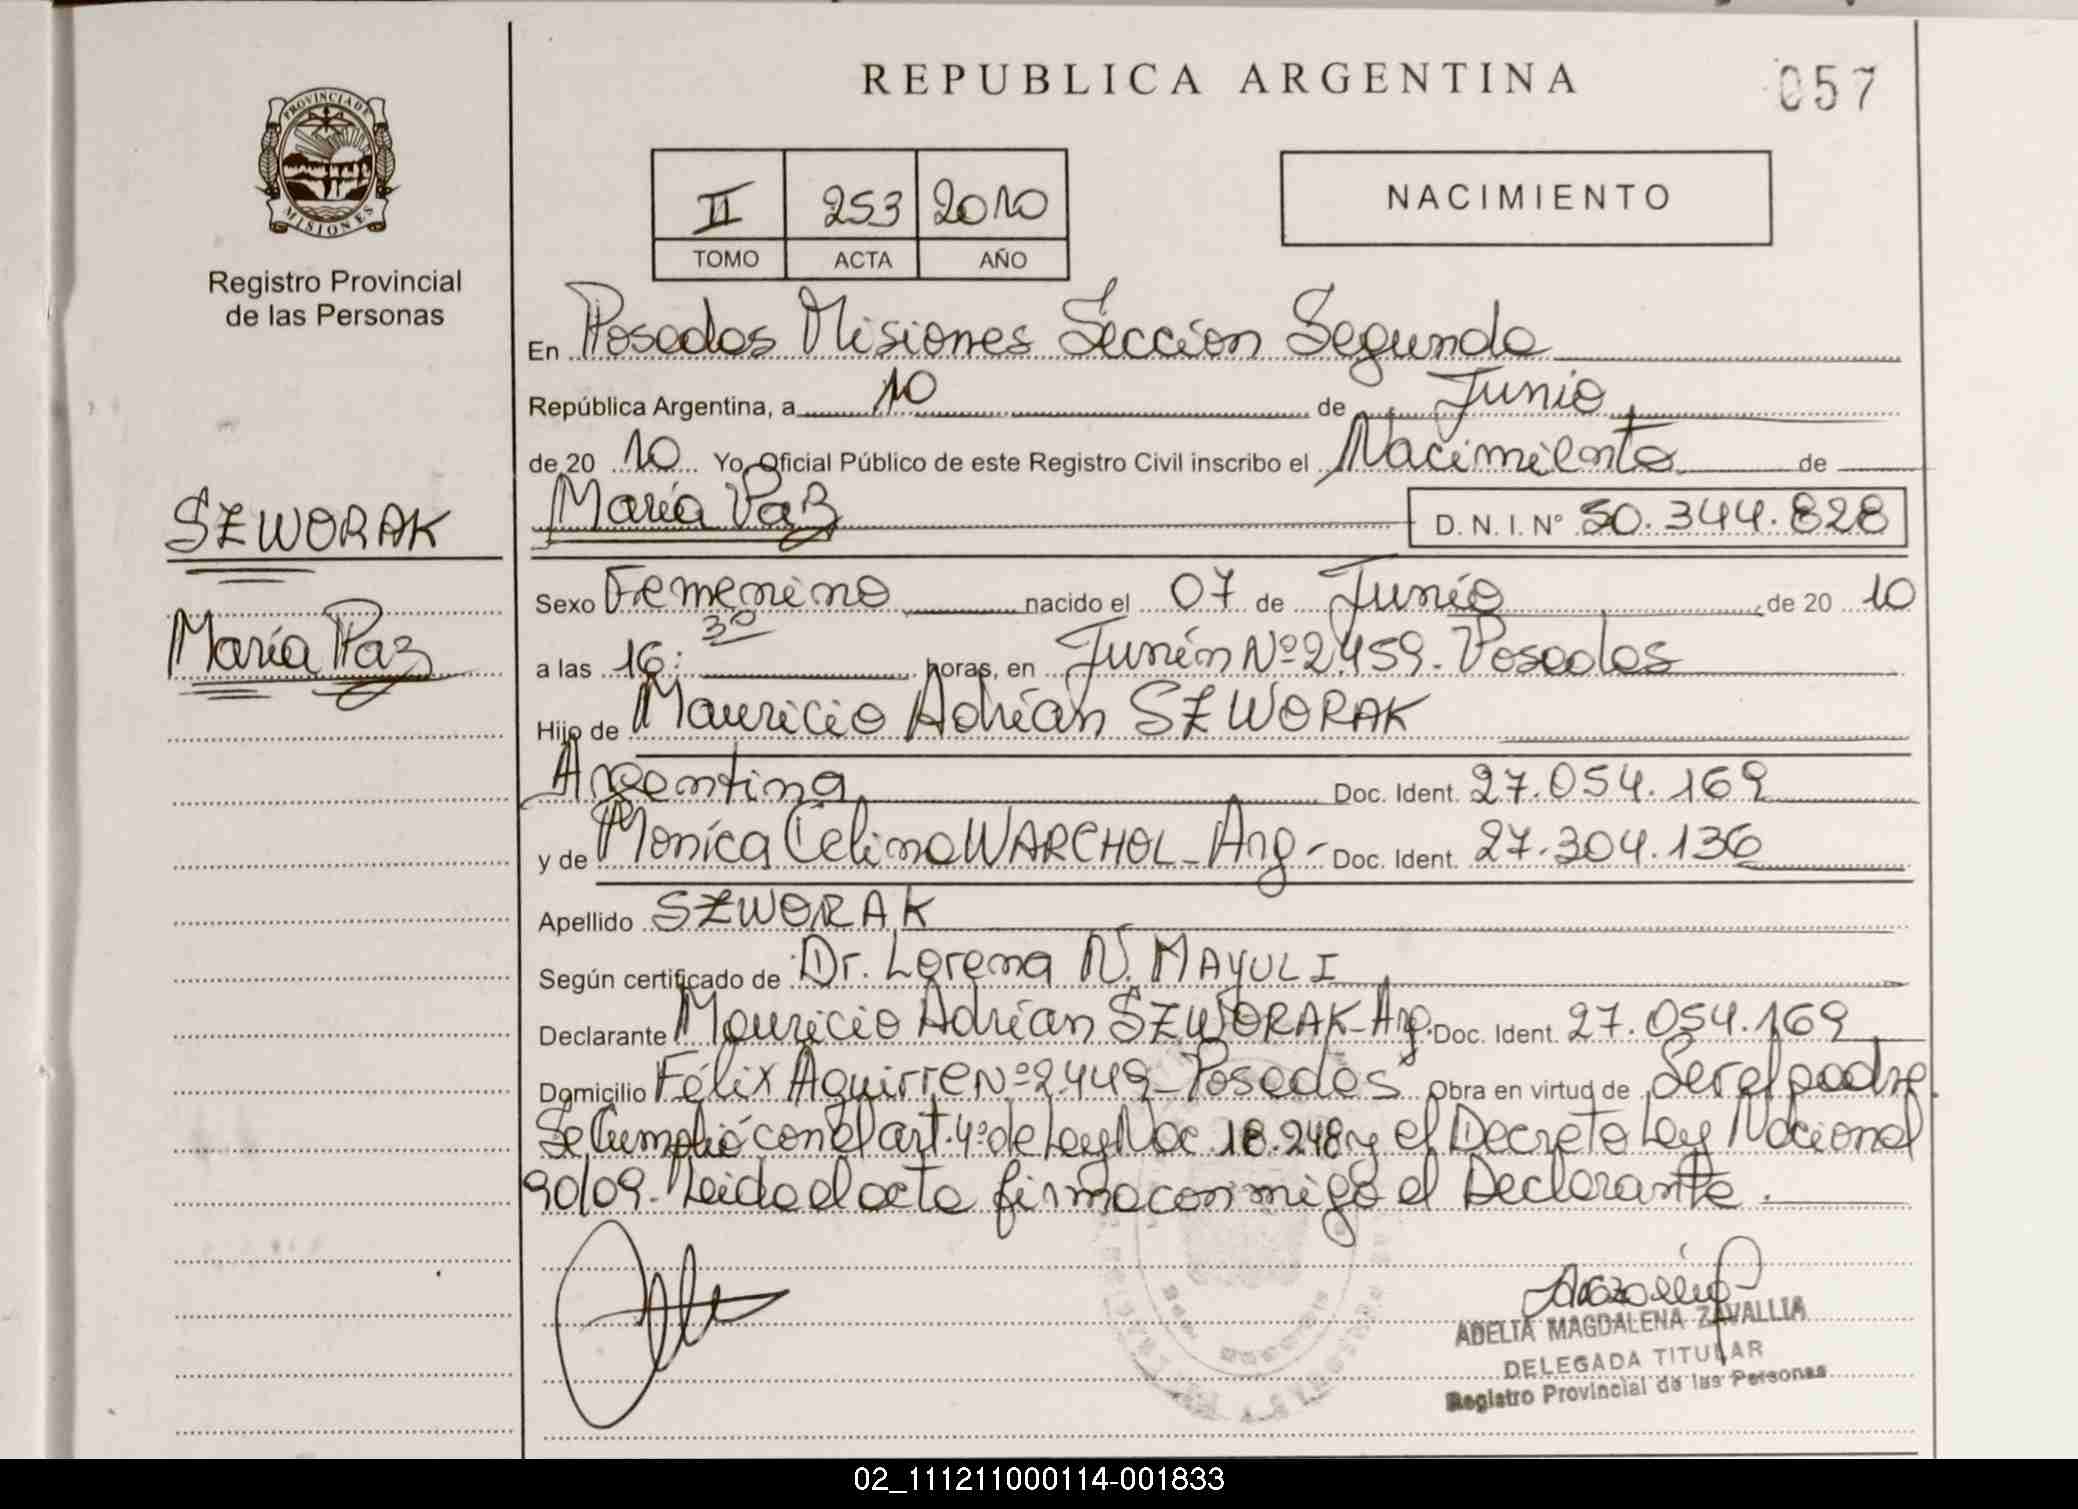 REPUBLICA ARGENTINA
057
PROVINCIA DE
MISIONES
Registro Provincial
de las Personas
II 253 2010
TOMO ACTA AÑO
NACIMIENTO
En Posadas Misiones Sección Segunda
República Argentina, a 10 de Junio
de 20 10 Yo Oficial Público de este Registro Civil inscribo el Nacimiento de
SZWORAK
María Paz
María Paz D.N.I. Nº 50.344.828
Sexo Femenino nacido el 07 de Junio de 20 10
a las 16:30 horas, en Junín Nº 2.459. Posadas
Hijo de Mauricio Adrían SZWORAK
Argentina Doc. Ident. 27.054.169
y de Monica Celina WARCHOL - Arg - Doc. Ident. 27.304.136
Apellido SZWORAK
Según certificado de Dr. Lorena N. MAYULI
Declarante Mauricio Adrían SZWORAK - Arg. Doc. Ident. 27.054.169
Domicilio Félix Aguirre Nº 2449 - Posadas Obra en virtud de Ser el padre.
Se Cumplió con el art. 4º de Ley Nac. 18.248 y el Decreto Ley Nacional
90/09. Leida el acta firma conmigo el Declarante.
ADELIA MAGDALENA ZAVALLIA
DELEGADA TITULAR
Registro Provincial de las Personas
02_111211000114-001833